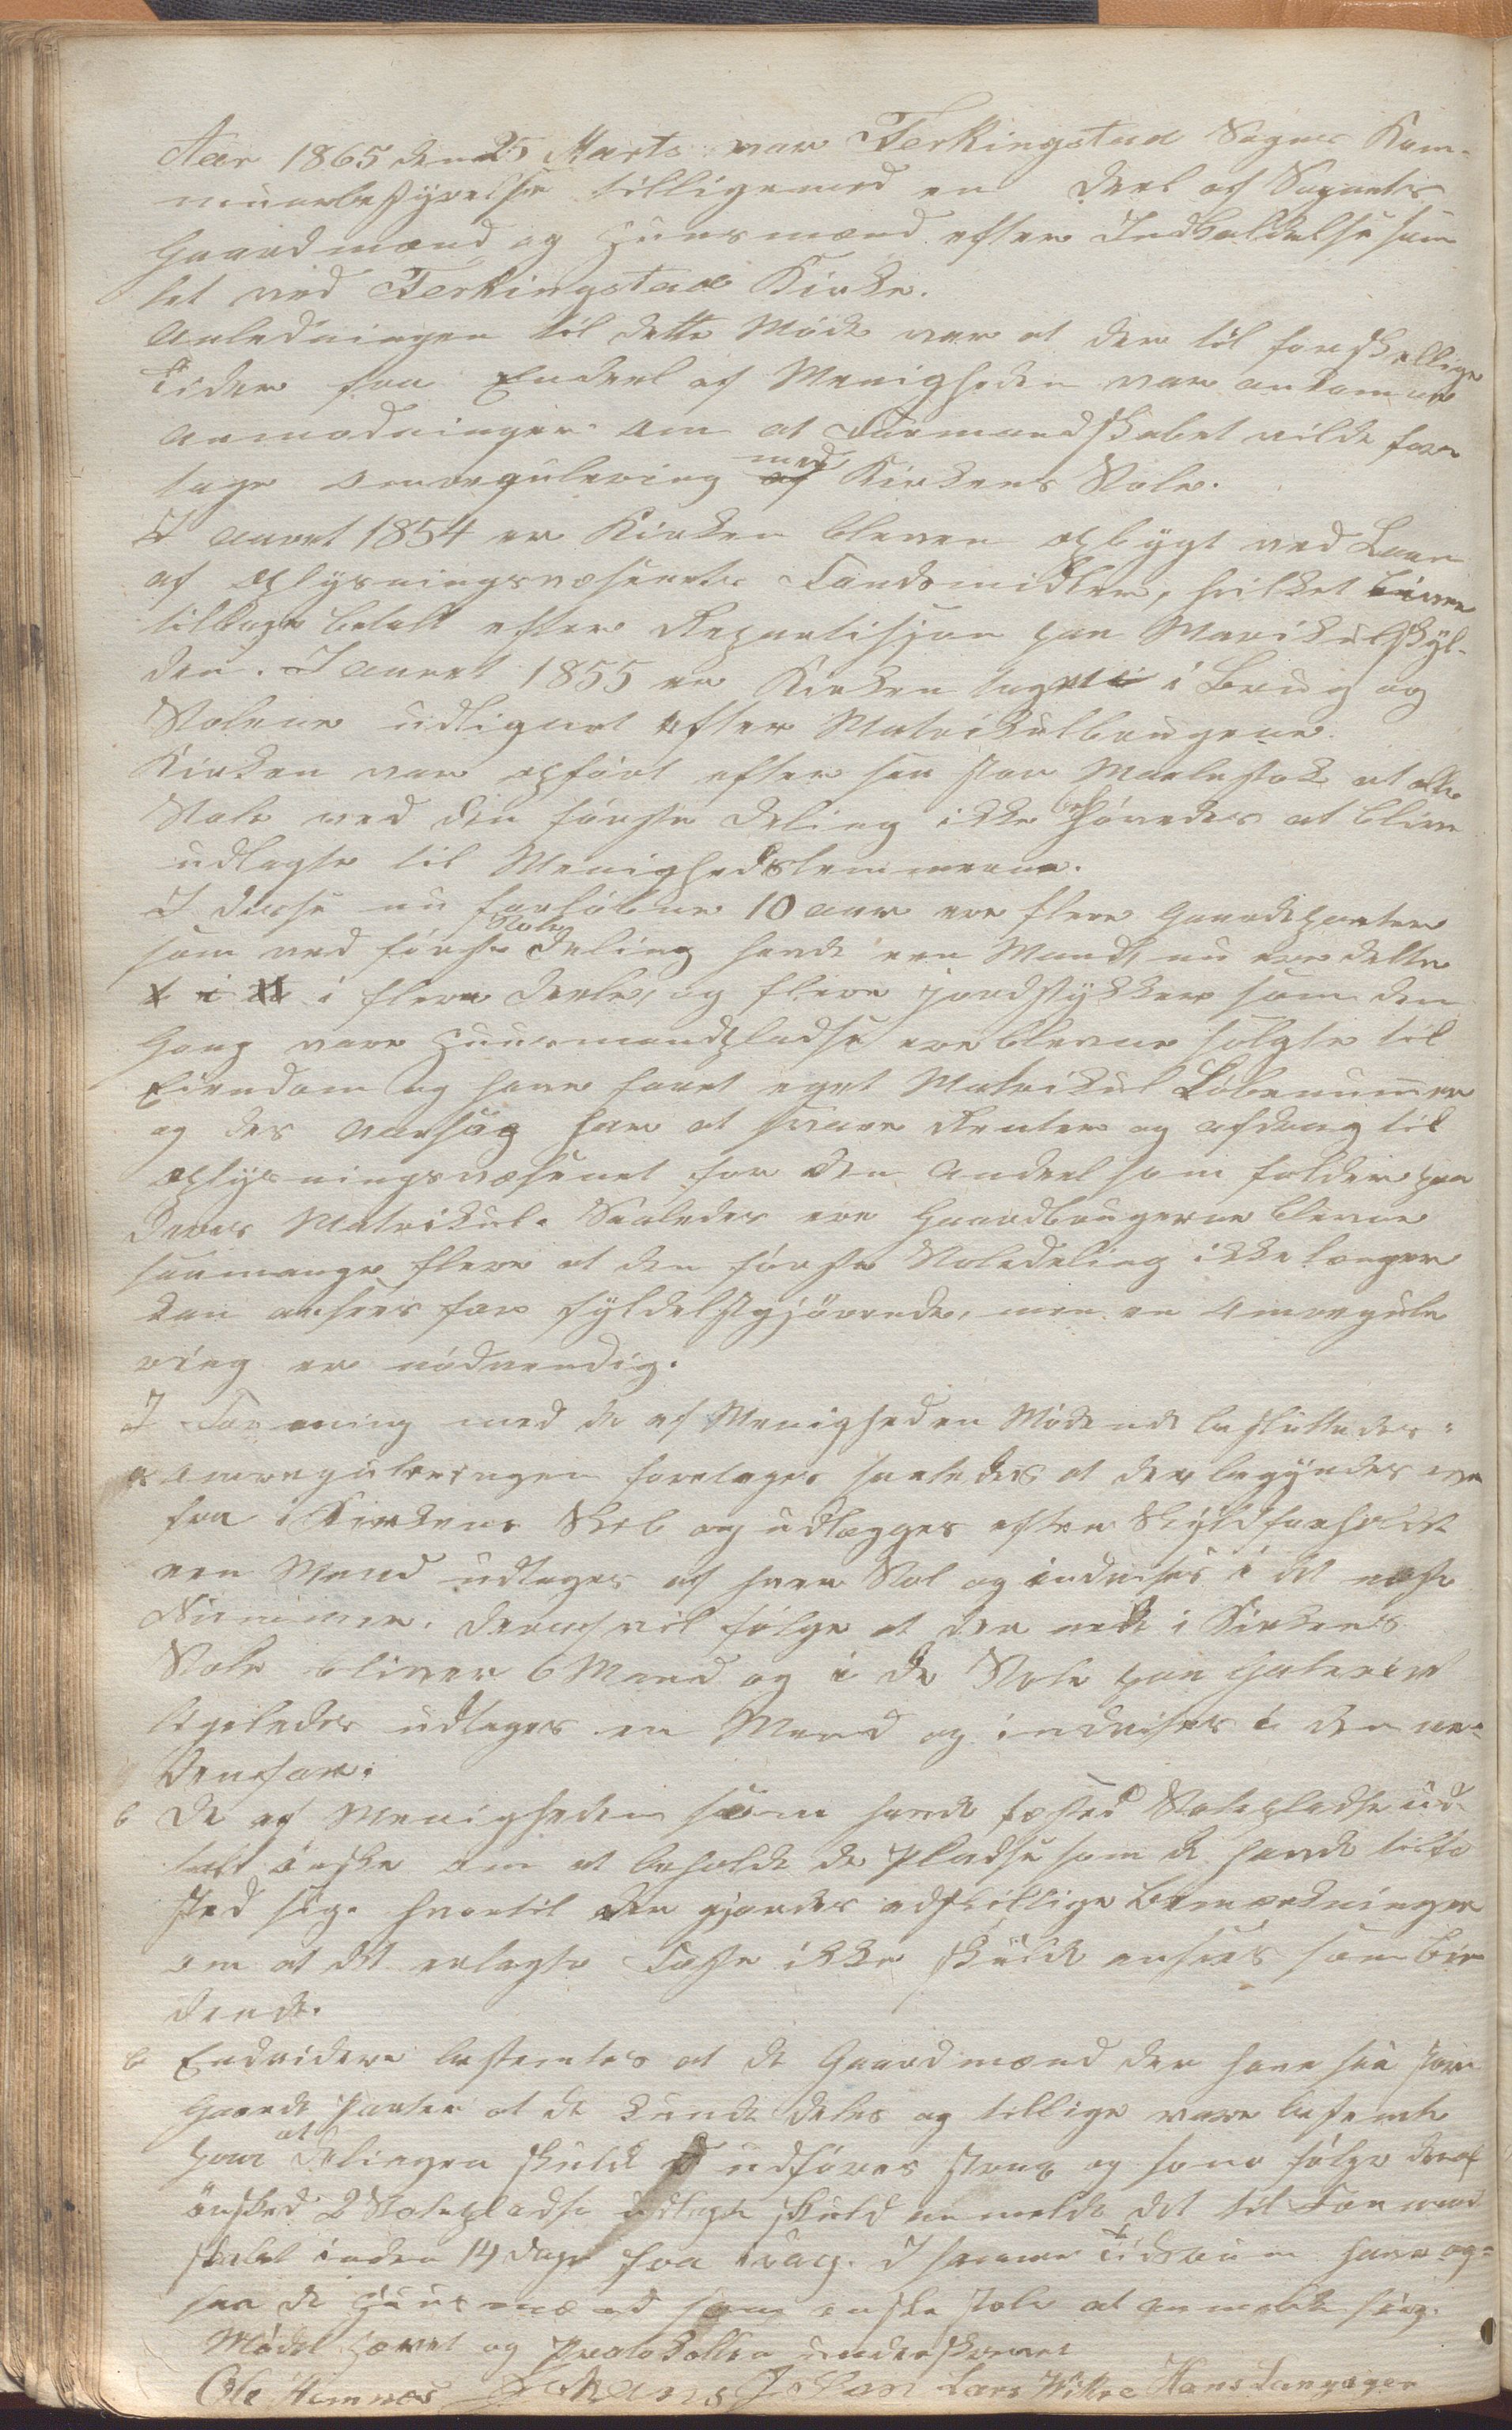 Aar 1865 den 25 Marts var Ferkingstad Sogns Kom-
munebestyrelse tilligemed en Deel af Sognets
Gaardmænd og Huusmænd efter Indkaldelse sam
let ved Ferkingstad Kirke.
Anledningen til dette Møde var at der til forskellige
Tider fra Endeel af Menigheden var ankomne
Anmodninger om at Formandskabet vilde fore
tage Omregulering med Kirkens Stole.
I Aaret 1854 er Kirken bleven opbygt ved Laan
af Oplysningsvæsenets Fondsmidler, hvilket bliver
tilbage betalt efter Repartisjon paa Matrikulskyl-
den. I Aaret 1855 er Kirken taget i Brug og
Stolene udlignet efter Matrikulbrugene.
Kirken var opført efter saa stor Maalestok at alle
Stole ved den første Deling ikke behøvedes at blive
udlagte til Menighedslemmerne.
I disse nu forløbne 10 Aar ere flere Gaardparter
som ved første Stole Deling havde een Mand, nu ere delte
i flere Deele, og flere Jordstykker som den
Gang vare Huusmandspladse ere blevne solgte til
Eiendom og have faaet eget Matrikul Løbenummer
og des Aarsag har at svare Renter og Afdrag til
Oplysningsvæsenet for den Andeel som falder paa
deres Matrikul. Saaledes ere Gaardbrugerne blevne
saamange flere at den første Stoledeling ikke længer
kan ansees for fyldestgjørende, men en Omregule
ring er nødvendig.
I Forening med de af Menigheden Mødende besluttedes:
a Omreguleringen foretages saaledes at der begyndes oven
fra i Kirkens Skib og udlægges efter Skyldforholdet
een Mand udtages af hver Stol og indvises i det næste
Nummer. Deraf vil følge at der nede i Kirkens
Stole bliver 6 Mand og i de Stole paa Galeriet
ligeledes udtages en Mand og indvises i den ne-
denfor.
b De af Menigheden som havde fæsted Stolepladse ud-
talt ønske om at beholde de Pladse som de havde tilfæ
sted sig. hvortil der gjordes adskillige Bemærkninger
om at det erlagte Fæste ikke skulde ansees som bin
dende.
c Endvidere bestemtes at de Gaardmænd der have saa store
Gaards Parter at de kunde deles og tillige vare bestemte
paa at Delingen skulde udføres strax og som følge deraf
ønsked 2 Stolepladse udlagte skuld anmelde det til Formand
skabet inden 14 Dage fra i Dag. I samme Tidsrum have og-
saa de Huusmænd som ønske Stole at anmelde sig.
Mødet hævet og Protokollen underskrevet
Ole Hemnes Johans Johan Lars Wikre Hans Langager